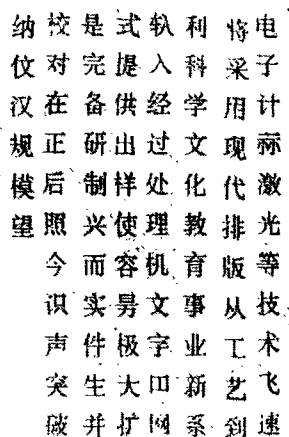 电子计激光等技术飞速
将采用现代排版从工艺到
利科学文化教育事业新系
入经过处理机文字网
式提供出样使容极大扩
是完备研制兴而实件生并
校对在正后照今识声突破
纳汉规模望